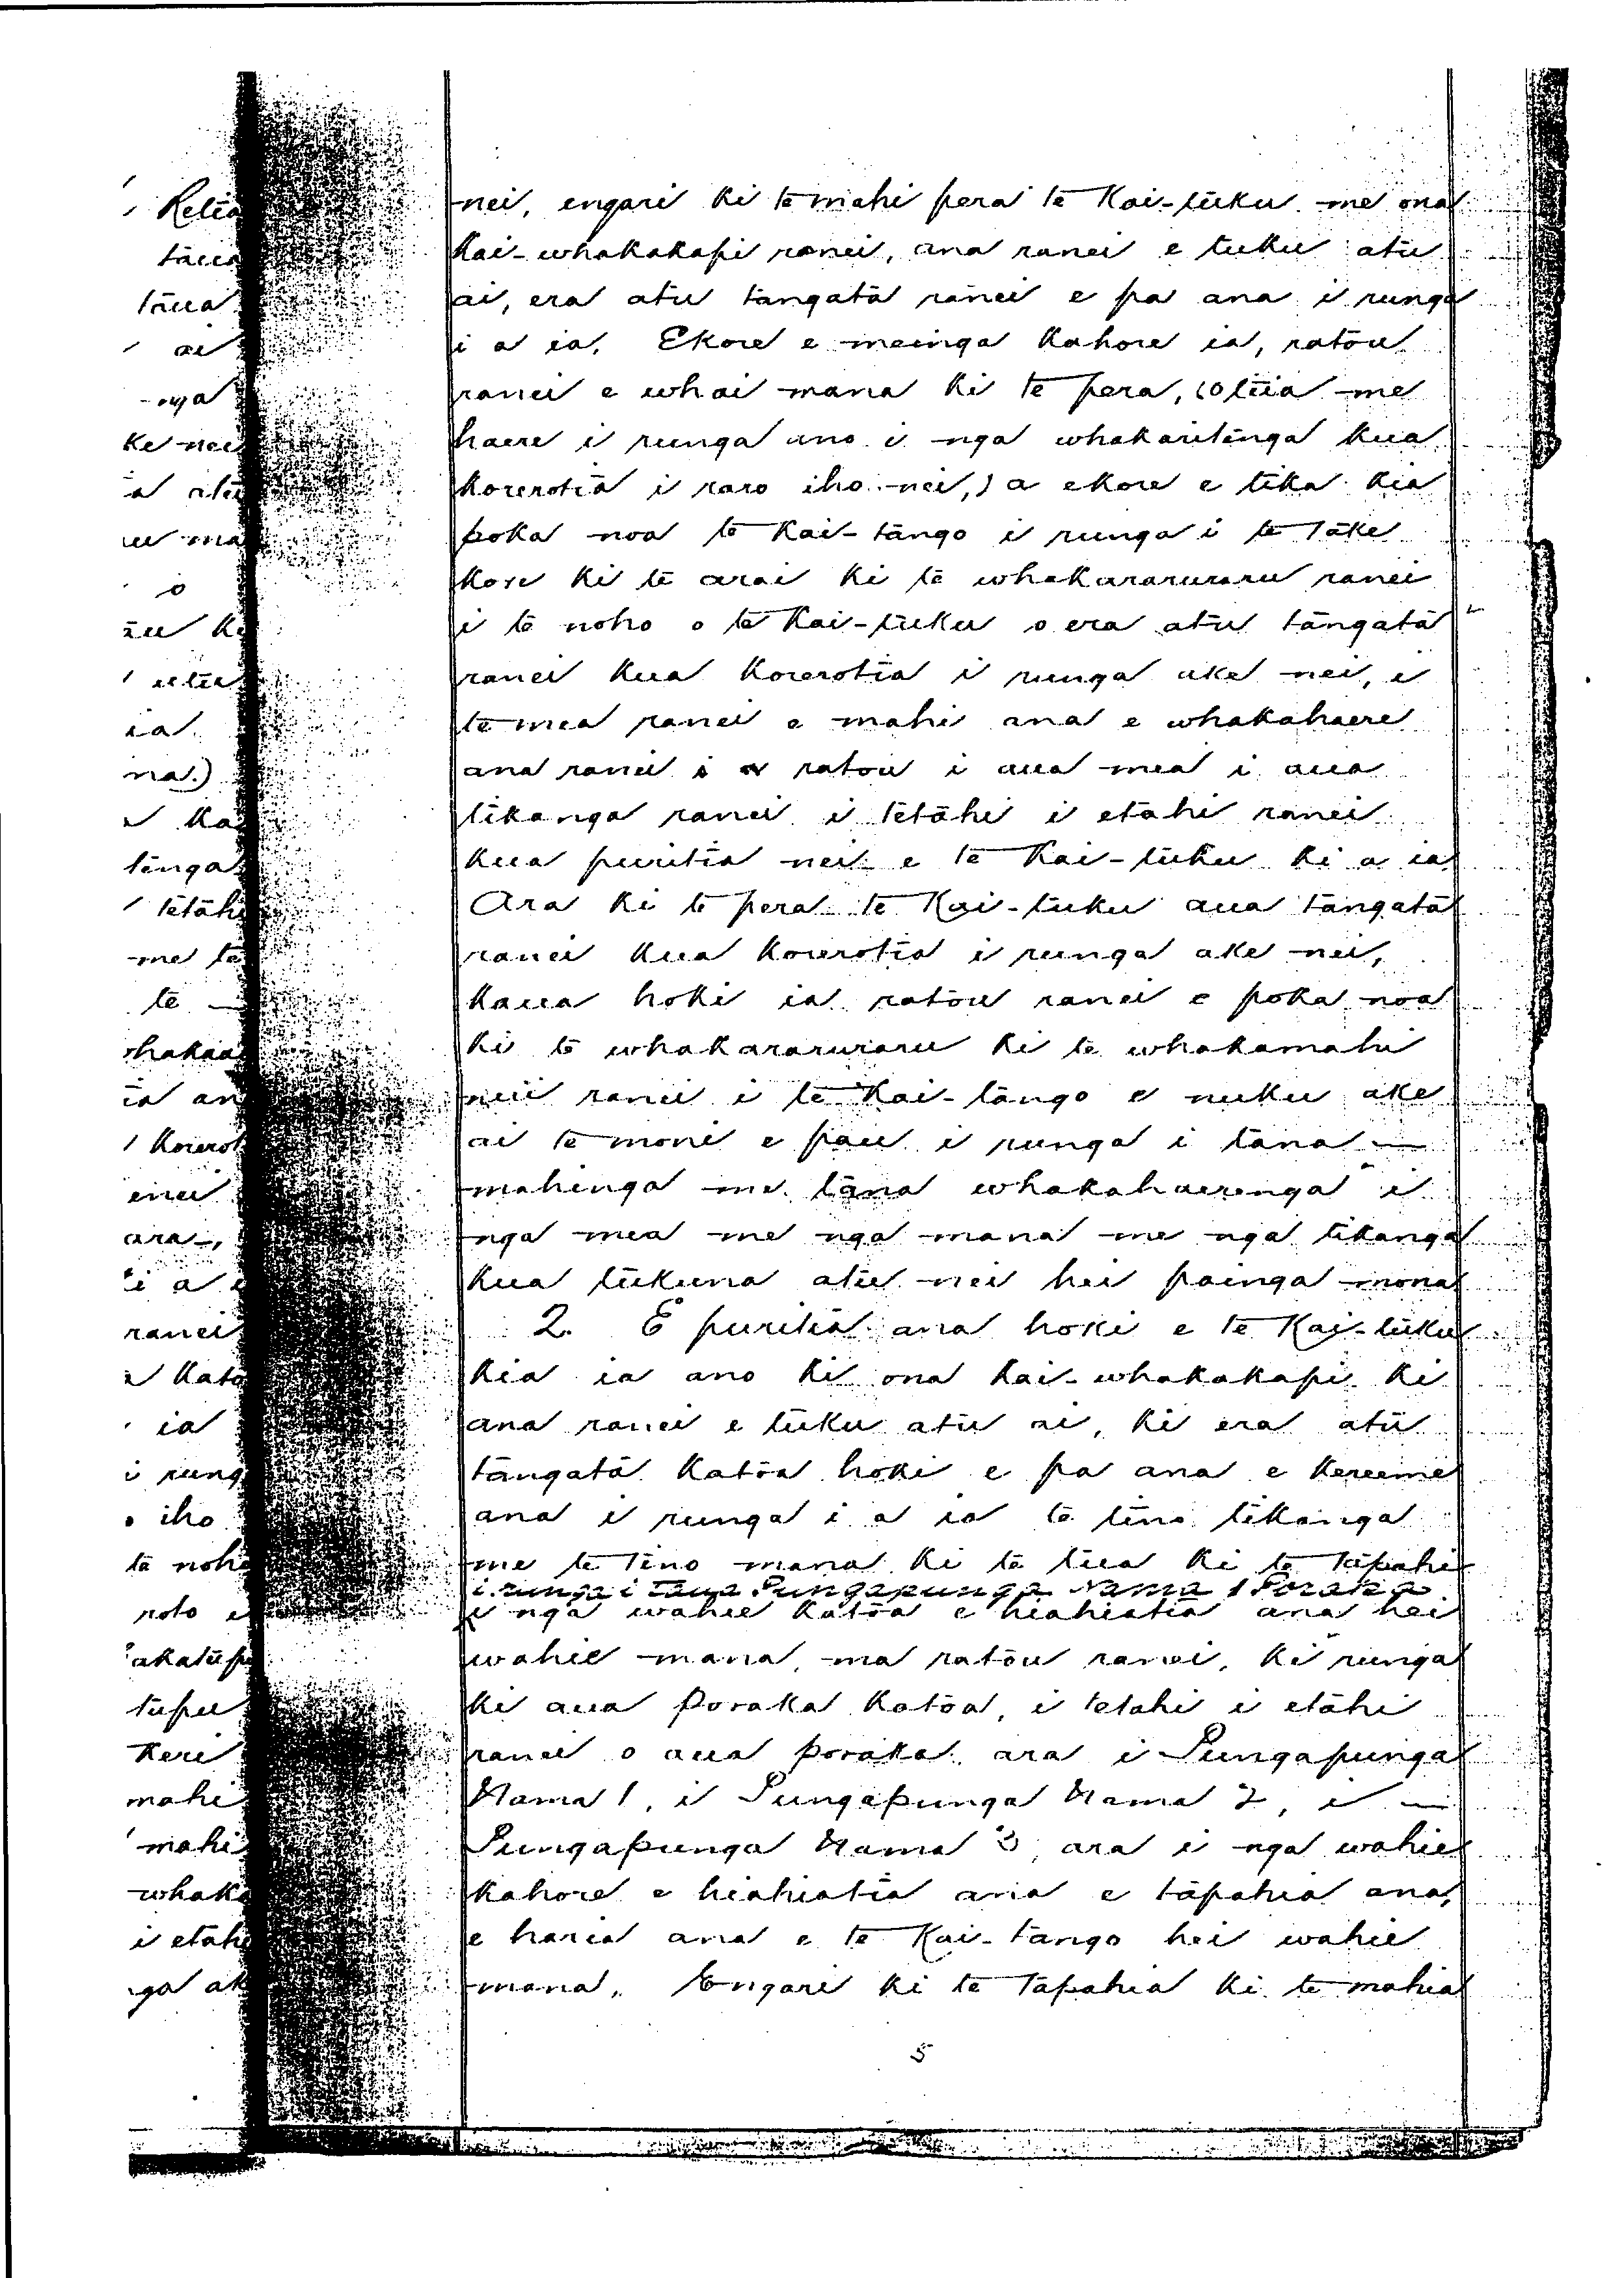 nei, engari ki te mahi pera te Kai-tuku me ona
Kai-whakakapi ranei, ana ranei e tuku atu
ai, era atu tangata ranei e pa ana i runga
i a ia. Ekore e meinga kahore ia, ratou
ranei e whai mana ki te pera, (otiia me
haere i runga ano i nga whakaritenga kua
korerotia i raro iho nei,) a ekore e tika kia
poka noa te Kai-tango i runga i te take
kore ki te arai ki te whakararuraru ranei
i te noho o te Kai-tuku o era atu tangata
ranei kua korerotia i runga ake nei, i
te mea ranei e mahi ana e whakahaere
ana ranei i a ratou i aua mea i aua
tikanga ranei i tetahi i etahi ranei
kua puritia nei e te Kai-tuku ki a ia
Ara ki te pera te Kai-tuku aua tangata
ranei kua korerotia i runga ake nei,
kaua hoki ia ratou ranei e poka noa
ki te whakararuraru ki te whakamahi
nui ranei i te Kai-tango e nuku ake
ai te moni e pau i runga i tana —
mahinga me tana whakahaerenga i
nga mea me nga mana me nga tikanga
kua tukuna atu nei hei painga mona
2. E puritia ana hoki e te Kai-tuku
kia ia ano ki ona kai-whakakapi ki
ana ranei e tuku atu ai, ki era atu
tangata katoa hoki e pa ana e kereeme
ana i runga i a ia te tino tikanga
me te tino mana ki te tua ki te tapahi
i runga i taua Pungapunga Nama 1 Poraka
i nga wahie katoa e hiahiatia ana hei
wahie mana, ma ratou ranei, ki runga
ki aua Poraka katoa, i tetahi i etahi
ranei o aua poraka ara i Pungapunga
Nama 1, i Pungapunga Nama 2, i —
Pungapunga Nama 3, ara i nga wahie
kahore e hiahiatia ana e tapahia ana,
e haria ana e te Kai-tango hei wahie
mana. Engari ki te tapahia ki te mahia
5